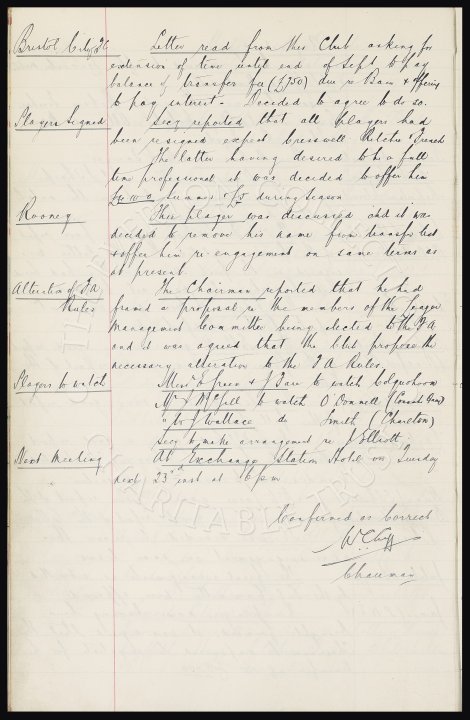 Bristol City FC Letter read from this Club asking for
extension of time until end of Sept to pay
balance of transfer fee (£750) due re Bain & offering
to pay interest - Decided to agree to do so.
Players Signed Secy reported that all players had
been resigned expect Cresswell Ritchie & French
The latter having desired to be a full
time professional it was decided to offer him
£4.10.0 Summer & £5 during Season
Rooney This player was discussed and it was
decided to remove his name from transfer list
& offer him re-engagement on same terms as
at present.
Alteration of FA The Chairman reported that he had
Rules framed a proposal re the members of the League
Management Committee being elected to the FA
and it was agreed that the Club propose the
necessary alteration to the FA Rules.
Players to watch Messrs Green & J Fare to watch Colquhoun
Mr McGill to watch O'Donnell
J Wallace do Smith (Charlton)
Secy to make arrangement re Elliott
Next Meeting At Exchange Station Hotel on Tuesday
next 23rd inst at 6pm
Confirmed as Correct
Chairman
CHARITABLE TRUST